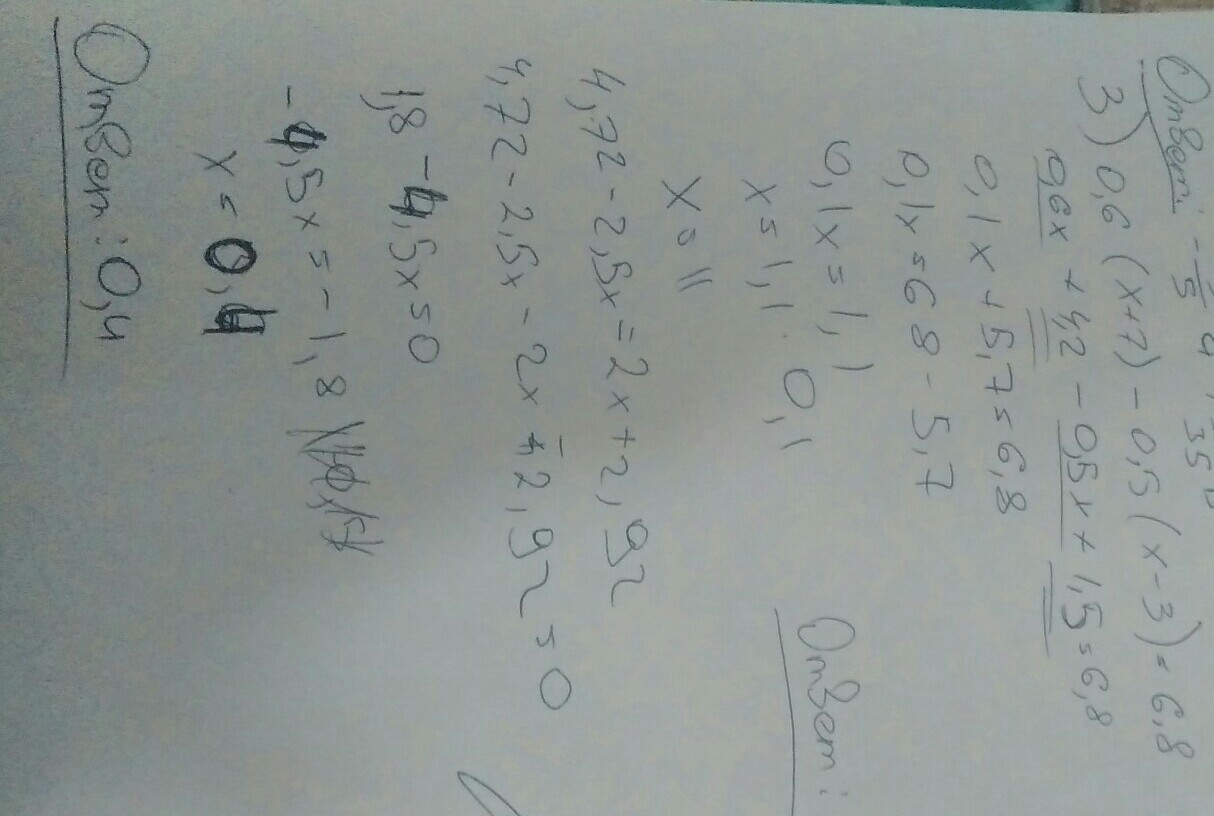 Ответ: -
3) 0,6 (x+7) - 0,5 (x-3) = 6,8
0,6x + 4,2 - 0,5x + 1,5 = 6,8
0,1x + 5,7 = 6,8
0,1x = 6 8 - 5,7
0,1x = 1,1
x = 1,1 . 0,1
x = 11
Ответ:
4,72 - 2,5x = 2x + 2,92
4,72 - 2,5x - 2x - 2,92 = 0
1,8 - 4,5x = 0
-4,5x = -1,8
x = 0,4
Ответ: 0,4